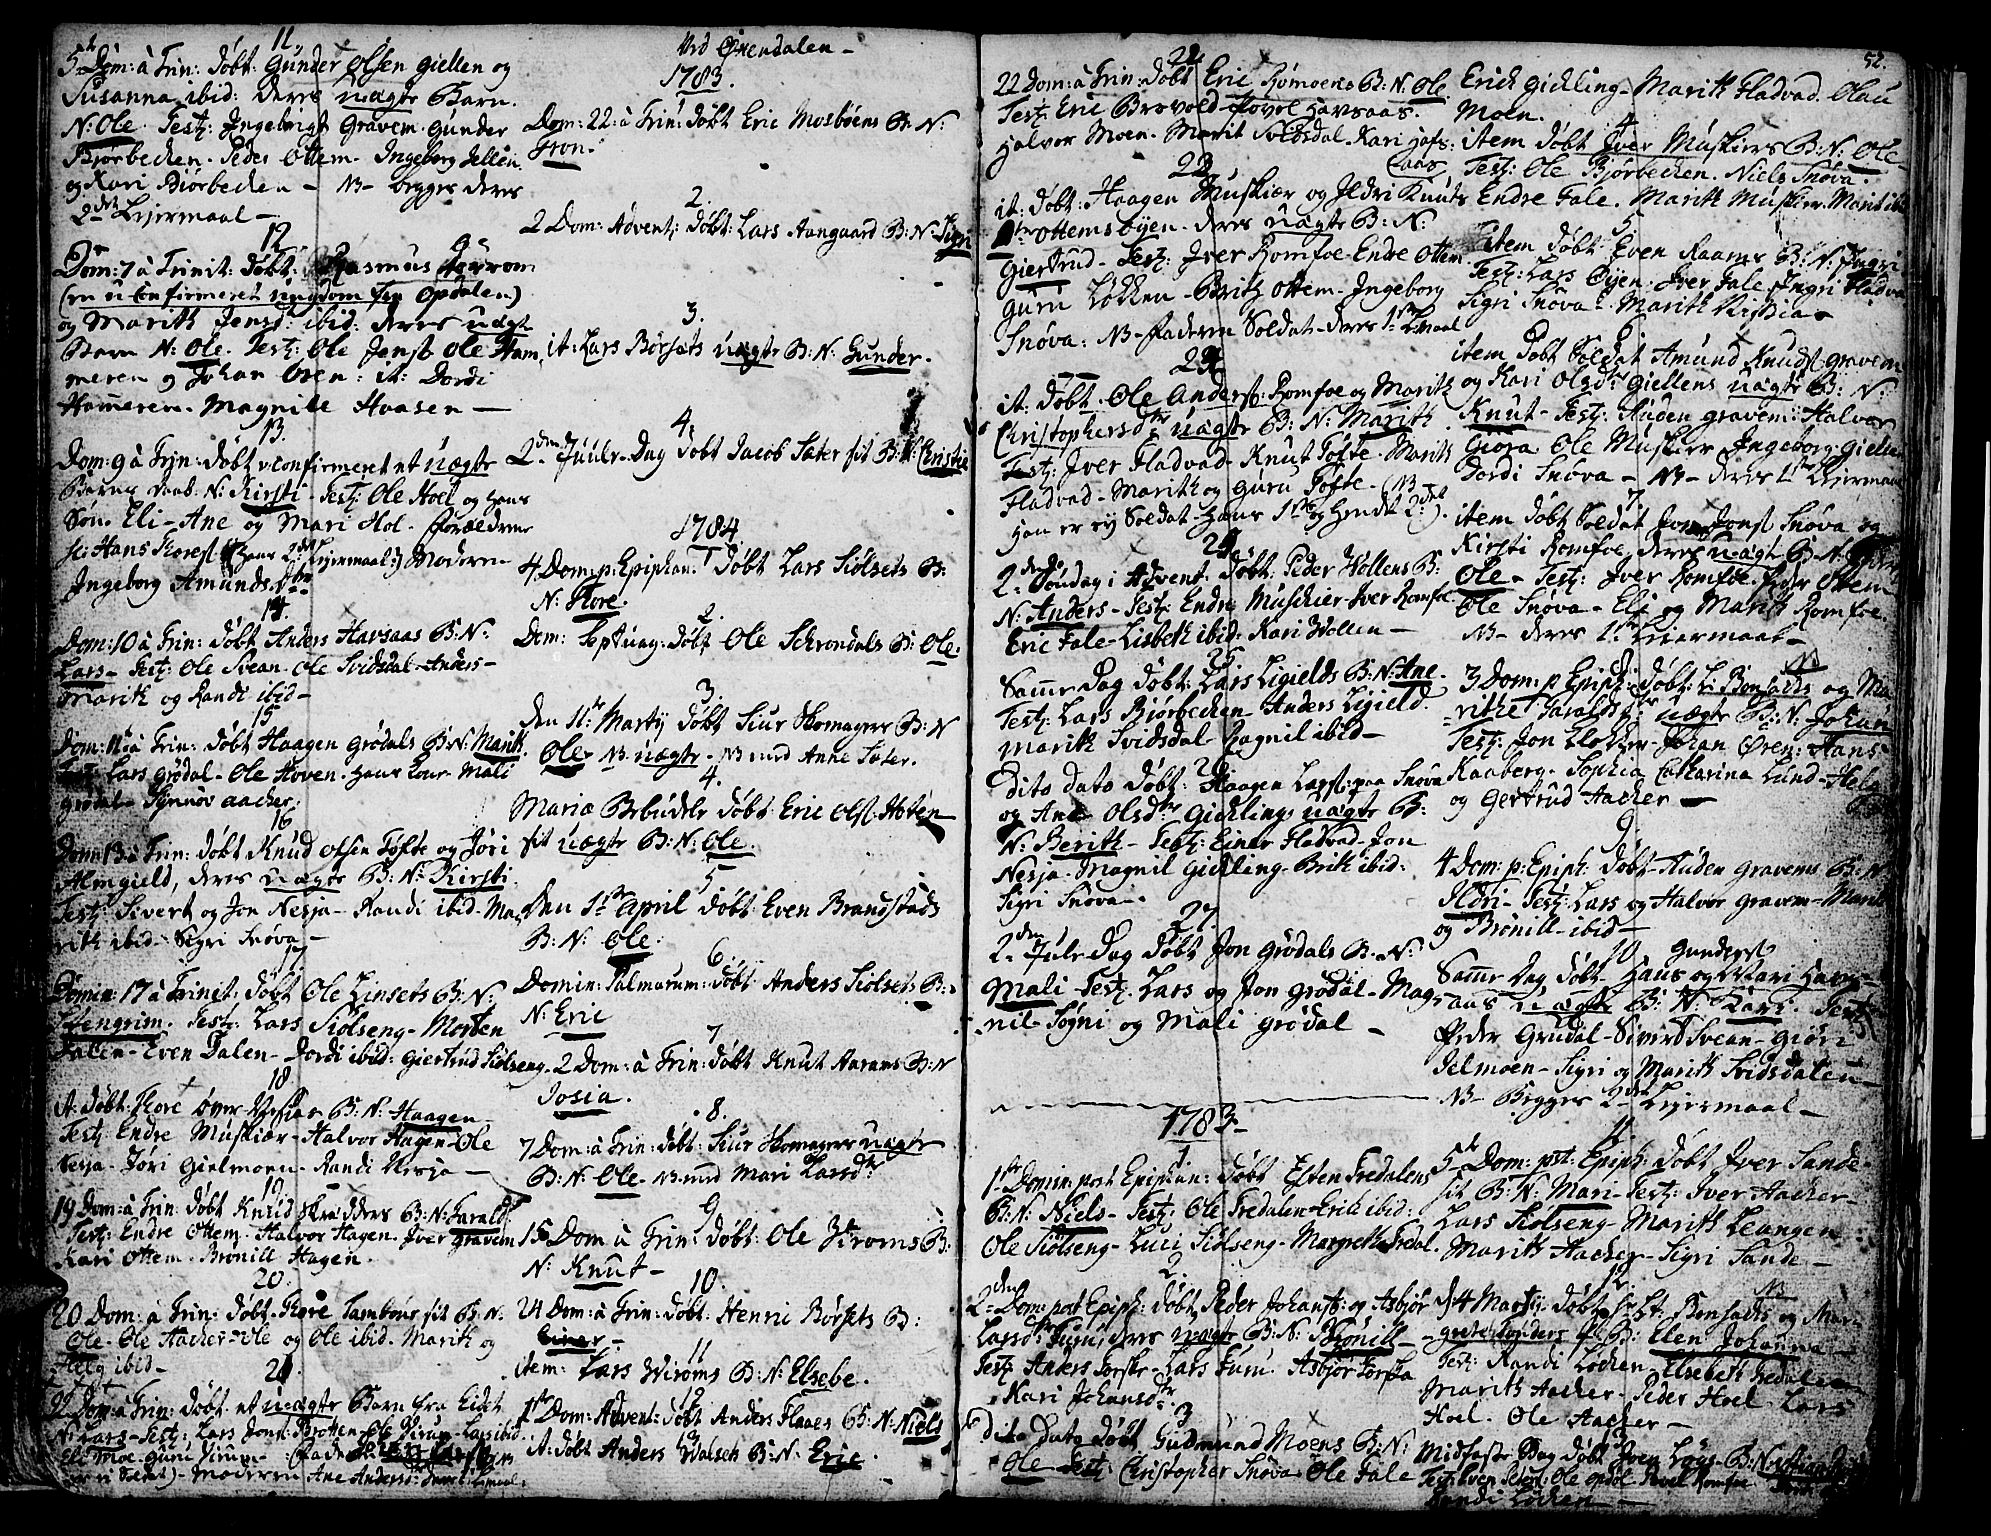 11.
5te Dom: à Trin: døbt. Gunder Olsen Giellen og
Susanna ibid: deres uægte Barn.
N: Ole. Test: Ingebrigt Gravem. Gunder
Biørbechen. Peder Ottem. Ingeborg Jellen
og Kari Biørbechen — NB — begges deres
2det Leiermaal —
12
Dom: 7 à Trinit: døbt: Rasmus
(en uconfirmeret ungdom fra Opdalen)
og Marith Jensd: ibid: deres uægte
Barn N: Ole. Test: Ole Jens: Ole Ham
meren og Johan Øren: it: Dordi
Hameren. Magnild Haasen —
13.
Dom: 9 à Trin: døbt uconfirmeret et uægte
Barns N: Kirsti. Test: Ole Hoel og Hans
Søn. Eli — Ane og Mari Hol. Forældrene
Hans Thorest (Hans 2det Leiermaal) Moderen
Ingeborg Amunds dtr
14
Dom: 10 à Trin: døbt Anders Havsaas B: N:
Lars — Test: Ole Svean. Ole Svidsdal. Anders —
Marith og Randi ibid —
15
Dom: 11 à Trin: døbt Haagen Grødals B: N: Marith
Lars Grødal — Ole Hoven. Hans Mali
Grødal Synnøv Aacher
16
Dom: 13 à Trin: døbt Knud Olsen Tofte og Jøri
Almgield, deres uægte B: N: Kirsti
Test: Sivert og Jon Nesja — Randi ibid. Ma
rith ibid — Sigri Snøva —
17
Domin: 17 à Trinit: døbt Ole Linsets B: N:
Stengrim. Test: Lars Siølseng — Morten
Dalen — Even Dalen — Dordi ibid: Giertrud Siølseng
18
it. døbt Thore Over Vesiar B: N: Haagen
Test: Endre Muskiær — Halvor Hagen — Ole
Nesja — Jøri Gielmoen — Randi Nesja —
19
19 Dom: à Trin: døbt Knud Skradders B: N: Harald
Test: Endre Ottem. Halvor Hagen. Iver Gravem
Kari Ottem. Brønill Hagen.
20.
20 Dom: à Trin: døbt Thore Tambours fit B: N:
Ole — Ole Aacher — Ole og Ole ibid. Marith og
Helg ibid —
21
22 Dom: à Trin: døbt et uægte Barn fra Eidet
N: Lars — Test: Lars Jons. Brøtten — Ole Virum — Lars ibid
Eli Moe — Guru Virum
Moderen Ane Andersd:
Ved Øxendalen —
1783.
Dom: 22 à Trin: døbt Eric Mosbøens B: N:
Tron.
2.
2 Dom: Advent: døbt: Lars Aangaard B: N: Sigri
3.
it: Lars Børsets uægte B: N: Gunder.
4.
2den Juule-Dag døbt Jacob Sæter fit B: N: Christie
1784
1
4 Dom: p: Epiphan: døbt Lars Siølsets B:
N: Thore.
2.
Dom: Septuag: døbt Ole Schrondals B: Ole.
3.
den 11te Martij døbt Siur Skomagers B: N
Ole NB uægte — NB med Anne Sæter.
4.
Mariæ Bebudels døbt Eric Ols: Hoten
fit uægte B: N: Ole.
5
Den 1ste April døbt Even Brandstads
B: N: Ole.
6.
Domin: Palmarum: døbt Anders Siølsets B:
N: Eric
7
2 Dom: à Trin: døbt Knut Aarams B: N
Josia.
8.
7 Dom: à Trin: døbt: Siur Skomagers uægte
B: N: Ole — NB med Mari Larsdtr
9
15 Dom à Trin: døbt: Ole Virums B:
N: Knut —
10.
24 Dom: à Trin: døbt: Henric Børsets B:
Einer —
11
item: Lars Wiroms B: N: Elsebe.
12
1ste Dom: Advent: døbt Anders Flaaes B: N: Niels
13
it. døbt Anders Walsets B: N: Eric.
21
22 Dom: à Trin: døbt Eric Rømoens B: N: Ole
Test: Eric Brøvold. Povel Havsaas.
Halvor Moen. Marit Svidsdal Kari Hafs:
aas
22
it: døbt: Haagen Muskiær og Ildri Knuts
dtr Ottemsøyen. deres uægte B: N:
Giertrud — Test: Iver Romfoe — Endre Ottem
Guru Løkken — Brith Ottem — Ingeborg
Snøva: NB — Faderen Soldat — deres 1ste Lmaal
23
it: døbt. Ole Anders: Romfoe og Marith
Christophersdtr uægte B: N: Marith
Test: Iver Fladvad — Knut Tofte — Marith
Fladvad — Marith og Guru Tofte — (NB —
Han er ey Soldat. Hans 1ste og Hendes 2det.)
24
2den Søndag i Advent. døbt: Peder Wollens B:
N: Anders — Test: Endre Muskier — Iver Romfoe
Eric Fale — Lisbeth ibid: Kari Wollen —
25
Same Dag døbt: Lars Ligields B: N: Ane.
Test: Lars Biørbechen Anders Ligield.
Marith Svidsdal. Ragnil ibid —
26
Dito dato døbt: Haagen Lars: paa Snøva
og Ane Olsdtr Gichlings uægte B:
N: Berith — Test: Einer Fladvad — Jon
Nesja — Magnil Gichling — Brith ibid:
Sigri Snøva —
27.
2den Jule Dag døbt Jon Grødals B: N:
Mali — Test: Lars og Jon Grødal — Mag
nil — Søgni og Mali Grødal —
1783 —
1
1ste Domin: post Epiphan: døbt Esten Fredalens
B: N: Niels — Test: Ole Fredalen — Erich ibid:
Ole Siølseng — Luci Siølseng — Margreth Fredal.
2
2den Dom: post Epiph: døbt. Peder Johans: og Asbjør
Larsdtr Furu, deres uægte B: N: Brønill —
Test: Anders Torske — Lars Furu. Asbjør Torska
Kari Johansdtr
3
Dito Dato døbt Gudmund Moens B: N:
Ole — Test: Christopher Snøva. Ole Fale
52.
Erich Gichling — Marith Fladvad. Olau
Moen.
4
item døbt Iver Muskiers B: N: Ole
Test: Ole Biørbechen. Niels Snøva.
Endre Fale. Marith Muskier. Marit ibid
5
item døbt Even Raams B: N: Ingri
Test: Lars Øyen. Iver Fale. Ingri Fladvad
Sigri Snøva — Marith
6
item døbt Soldat Amund Knuds: Gravem
og Kari Olsdtr Giellens uægte B: N:
Knut — Test: Auden Gravem: Halvor
Giora Ole Muskier Ingeborg Giellen
Dordi Snøva — NB — deres 1ste Leiermaal
7
item døbt Soldat Jons: Snøva og
Kirsti Romfoe, deres uægte B: N:
Ole — Test: Iver Romfoe. Peder Ottem
Ole Snøva — Eli og Marith Romfoe.
NB — deres 1ste Leiermaal —
8.
3 Dom: p Epiph: døbt: Li Bonsachs og Ma
rithe Haralds dtr uægte B: N: Johan
Test: Jon Klokker — Johan Øren: Hans
Kaaberg — Sophia Catharina Lund — Helg
og Gertrud Aacher —
9
4 Dom: p: Epiph: døbt — Auden Gravems B: N
Ildri — Test: Lars og Halvor Gravem — Marit
og Brønill — ibid —
10 Gunders:
Same Dag døbt Hans og Mari Havs
aas uægte B: N: Kari. Test:
Peder Grudal — Sivert Svean — Giøri
Jelmoen — Sigri og Marith Svidsdalen —
NB — Begges 2det Leiermaal —
11.
5te Dom: post: Epiph: døbt Iver Sande —
fit B: N: Mari — Test: Iver Aacher —
Lars Siølseng — Marith Leangen
Marith Aacher — Sigri Sande —
12.
d: 4 Martij døbt Lt. Bonsachs og Mar
grete Tønders B: Elen Johanna —
Test: Randi Lochen — Elsebeth Fredalen
Marith Aacher. Peder Hoel. Lars
Hoel. Ole Aacher —
13
Midfaste Dag døbt Iven Løys B: N:
Test: Ole Opdøl. Povel Romfoe
Randi Lochen —